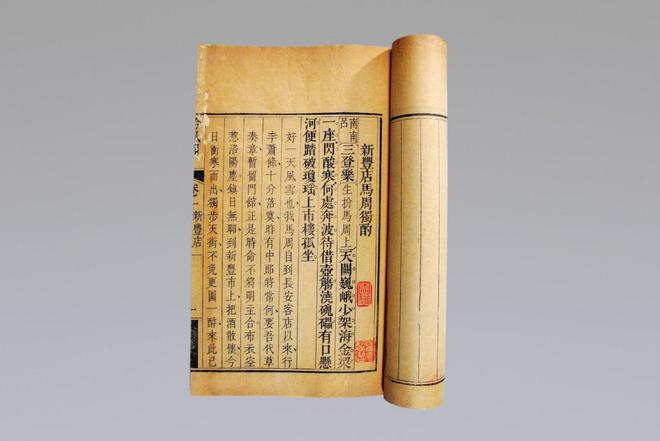 新豐店馬周獨酌
南南呂三登樂生扮馬周上天闕巍峨少架海金梁
一座閃酸寒何處奔波待借壺觴澆磈礧有口懸
河便踏破瓊瑤上市樓孤坐
好一天風雪也我馬周自到長安客店以來行
李蕭條十分落寞昨有中郎將常何要吾代草
奏章暫留門館正是時命不將明主合布衣空
惹洛陽塵鎮日無聊到新豐市上把酒散懷今
日衝寒而出獨步天街不免更圖一醉來此已
卷一 新豐店 一